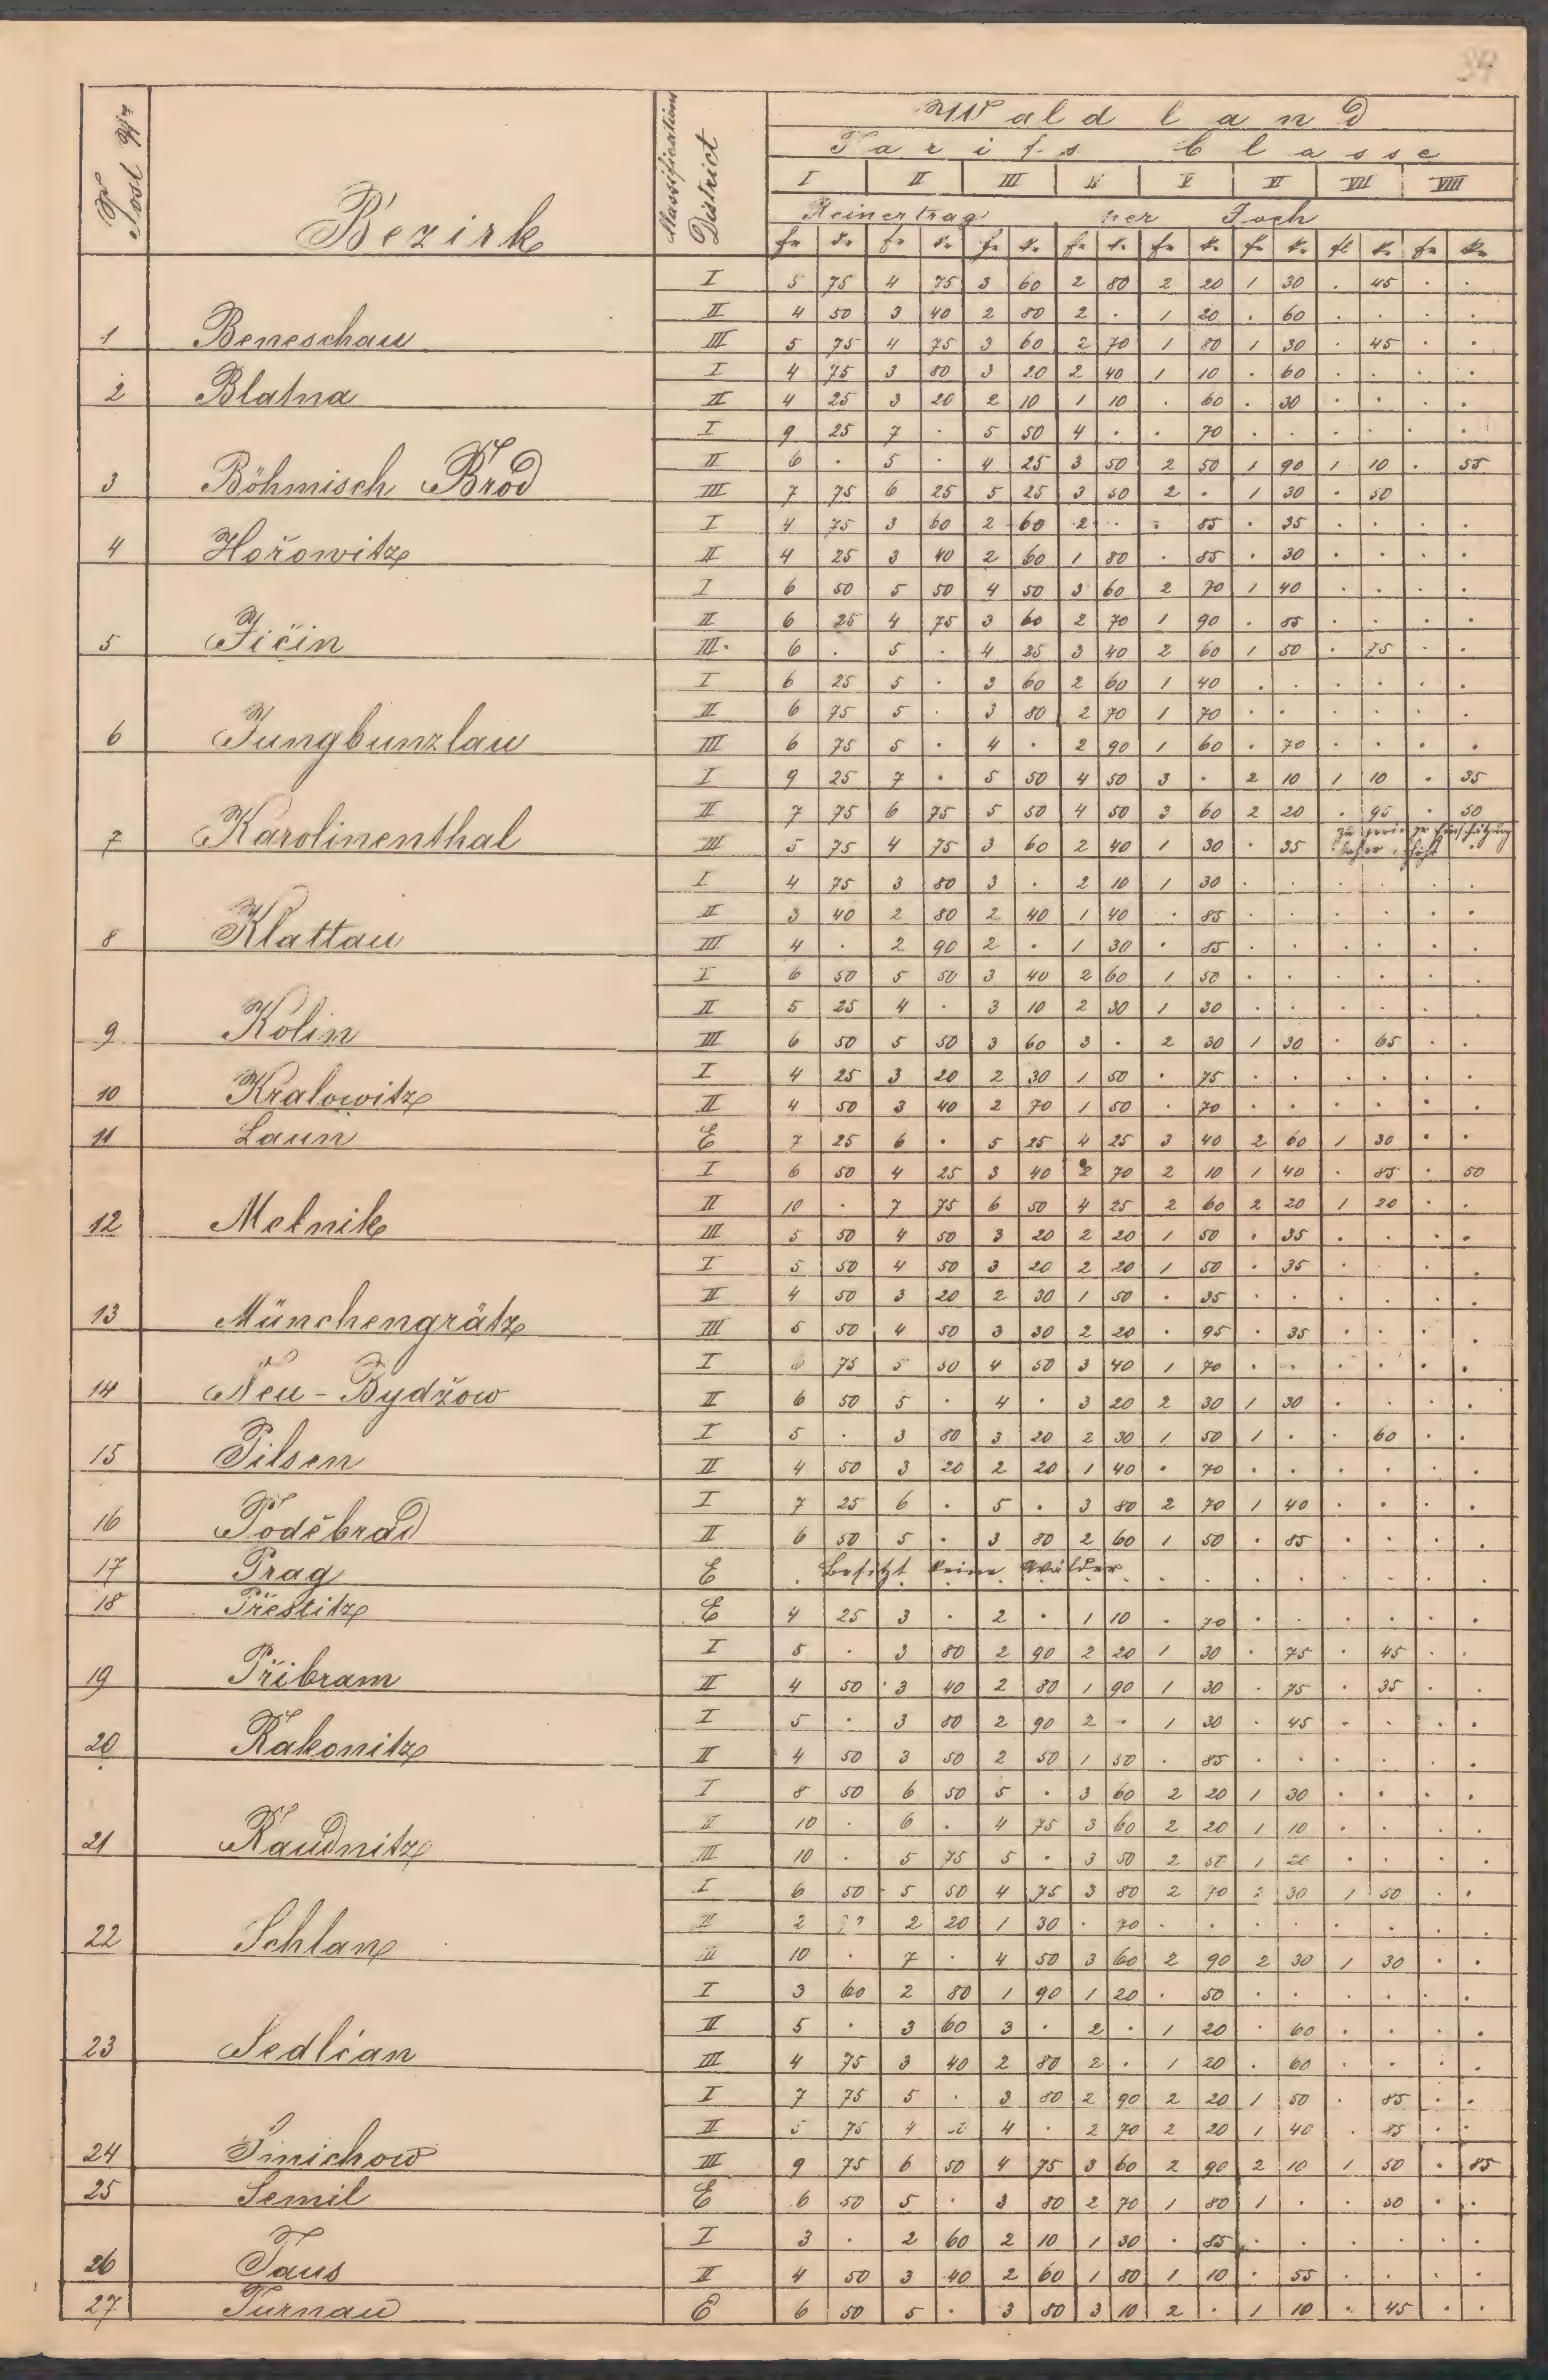 34
Post Nr
Bezirk
Classifications District
Waldland
Tarifs Classe
I II III IV V VI VII VIII
Reinertrag per Joch
fl k. fl k. fl k. fl k. fl k. fl k. fl k. fl k.
I 5 75 4 75 3 60 2 80 2 20 1 30 . 45 . .
II 4 50 3 40 2 80 2 . 1 20 . 60 . . . .
1 Beneschau III 5 75 4 75 3 60 2 70 1 80 1 30 . 45 . .
I 4 75 3 80 3 20 2 40 1 10 . 60 . . . .
2 Blatna II 4 25 3 20 2 10 1 10 . 60 . 30 . . . .
I 9 25 7 . 5 50 4 . . 70 . . . . . .
II 6 . 5 . 4 25 3 50 2 50 1 90 1 10 . 55
3 Böhmisch Brod III 7 75 6 25 5 25 3 50 2 . 1 30 . 50
I 4 75 3 60 2 60 2 . . 85 . 35 . . . .
4 Hořowitz II 4 25 3 40 2 60 1 80 . 85 . 30 . . . .
I 6 50 5 50 4 50 3 60 2 70 1 40 . . . .
II 6 25 4 75 3 60 2 70 1 90 . 85 . . . .
5 Jičin III 6 . 5 . 4 25 3 40 2 60 1 50 . 75 . .
I 6 25 5 . 3 60 2 60 1 40 . . . . . .
II 6 75 5 . 3 80 2 70 1 70 . . . . . .
6 Jungbunzlau III 6 75 5 . 4 . 2 90 1 60 . 70 . . . .
I 9 25 7 . 5 50 4 50 3 . 2 10 1 10 . 35
II 7 75 6 75 5 50 4 50 3 60 2 20 . 95 . 50
7 Karolinenthal III 5 75 4 75 3 60 2 40 1 30 . 35 zu geringe Einschätzung
I 4 75 3 80 3 . 2 10 1 30 . . . . . .
II 3 40 2 80 2 40 1 40 . 85 . . . . . .
8 Klattau III 4 . 2 90 2 . 1 30 . 85 . . . . . .
I 6 50 5 50 3 40 2 60 1 50 . . . . . .
II 5 25 4 . 3 10 2 30 1 30 . . . . . .
9 Kolin III 6 50 5 50 3 60 3 . 2 30 1 30 . 65 . .
I 4 25 3 20 2 30 1 50 . 75 . . . . . .
10 Kralowitz II 4 50 3 40 2 70 1 50 . 70 . . . . . .
11 Laun E 7 25 6 . 5 25 4 25 3 40 2 60 1 30 . .
I 6 50 4 25 3 40 2 70 2 10 1 40 . 85 . 50
II 10 . 7 75 6 50 4 25 2 60 2 20 1 20 . .
12 Melnik III 5 50 4 50 3 20 2 20 1 50 . 35 . . . .
I 5 50 4 50 3 20 2 20 1 50 . 35 . . . .
II 4 50 3 20 2 30 1 50 . 35 . . . . . .
13 Münchengrätz III 5 50 4 50 3 30 2 20 . 95 . 35 . . . .
I 6 75 5 50 4 50 3 40 1 70 . . . . . .
14 Neu-Bydžow II 6 50 5 . 4 . 3 20 2 30 1 30 . . . .
I 5 . 3 80 3 20 2 30 1 50 1 . . 60 . .
15 Pilsen II 4 50 3 20 2 20 1 40 . 70 . . . . . .
I 7 25 6 . 5 . 3 80 2 70 1 40 . . . .
16 Poděbrad II 6 50 5 . 3 80 2 60 1 50 . 85 . . . .
17 Prag E besitzt keine Wälder
18 Přestitz E 4 25 3 . 2 . 1 10 . 70 . . . . . .
I 5 . 3 80 2 90 2 20 1 30 . 75 . 45 . .
19 Přibram II 4 50 3 40 2 80 1 90 1 30 . 75 . 35 . .
I 5 . 3 80 2 90 2 . 1 30 . 45 . . . .
20 Rakonitz II 4 50 3 50 2 50 1 50 . 85 . . . . . .
I 8 50 6 50 5 . 3 60 2 20 1 30 . . . .
II 10 . 6 . 4 75 3 60 2 20 1 10 . . . .
21 Raudnitz III 10 . 5 75 5 . 3 50 2 50 1 20 . . . .
I 6 50 5 50 4 75 3 80 2 70 2 30 1 50 . .
II 2 2 20 1 30 . 70 . . . . . . . .
22 Schlan III 10 . 7 . 4 50 3 60 2 90 2 30 1 30 . .
I 3 60 2 80 1 90 1 20 . 50 . . . . . .
II 5 . 3 60 3 . 2 . 1 20 . 60 . . . .
23 Sedlčan III 4 75 3 40 2 80 2 . 1 20 . 60 . . . .
I 7 75 5 . 3 80 2 90 2 20 1 50 . 85 . .
II 5 75 4 4 . 2 70 2 20 1 40 . 85 . .
24 Smichow III 9 75 6 50 4 75 3 60 2 90 2 10 1 50 . 85
25 Semil E 6 50 5 . 3 80 2 70 1 80 1 . . 50 . .
I 3 . 2 60 2 10 1 30 . 85 . . . . . .
26 Taus II 4 50 3 40 2 60 1 80 1 10 . 55 . . . .
27 Turnau E 6 50 5 . 3 80 3 10 2 . 1 10 . 45 . .